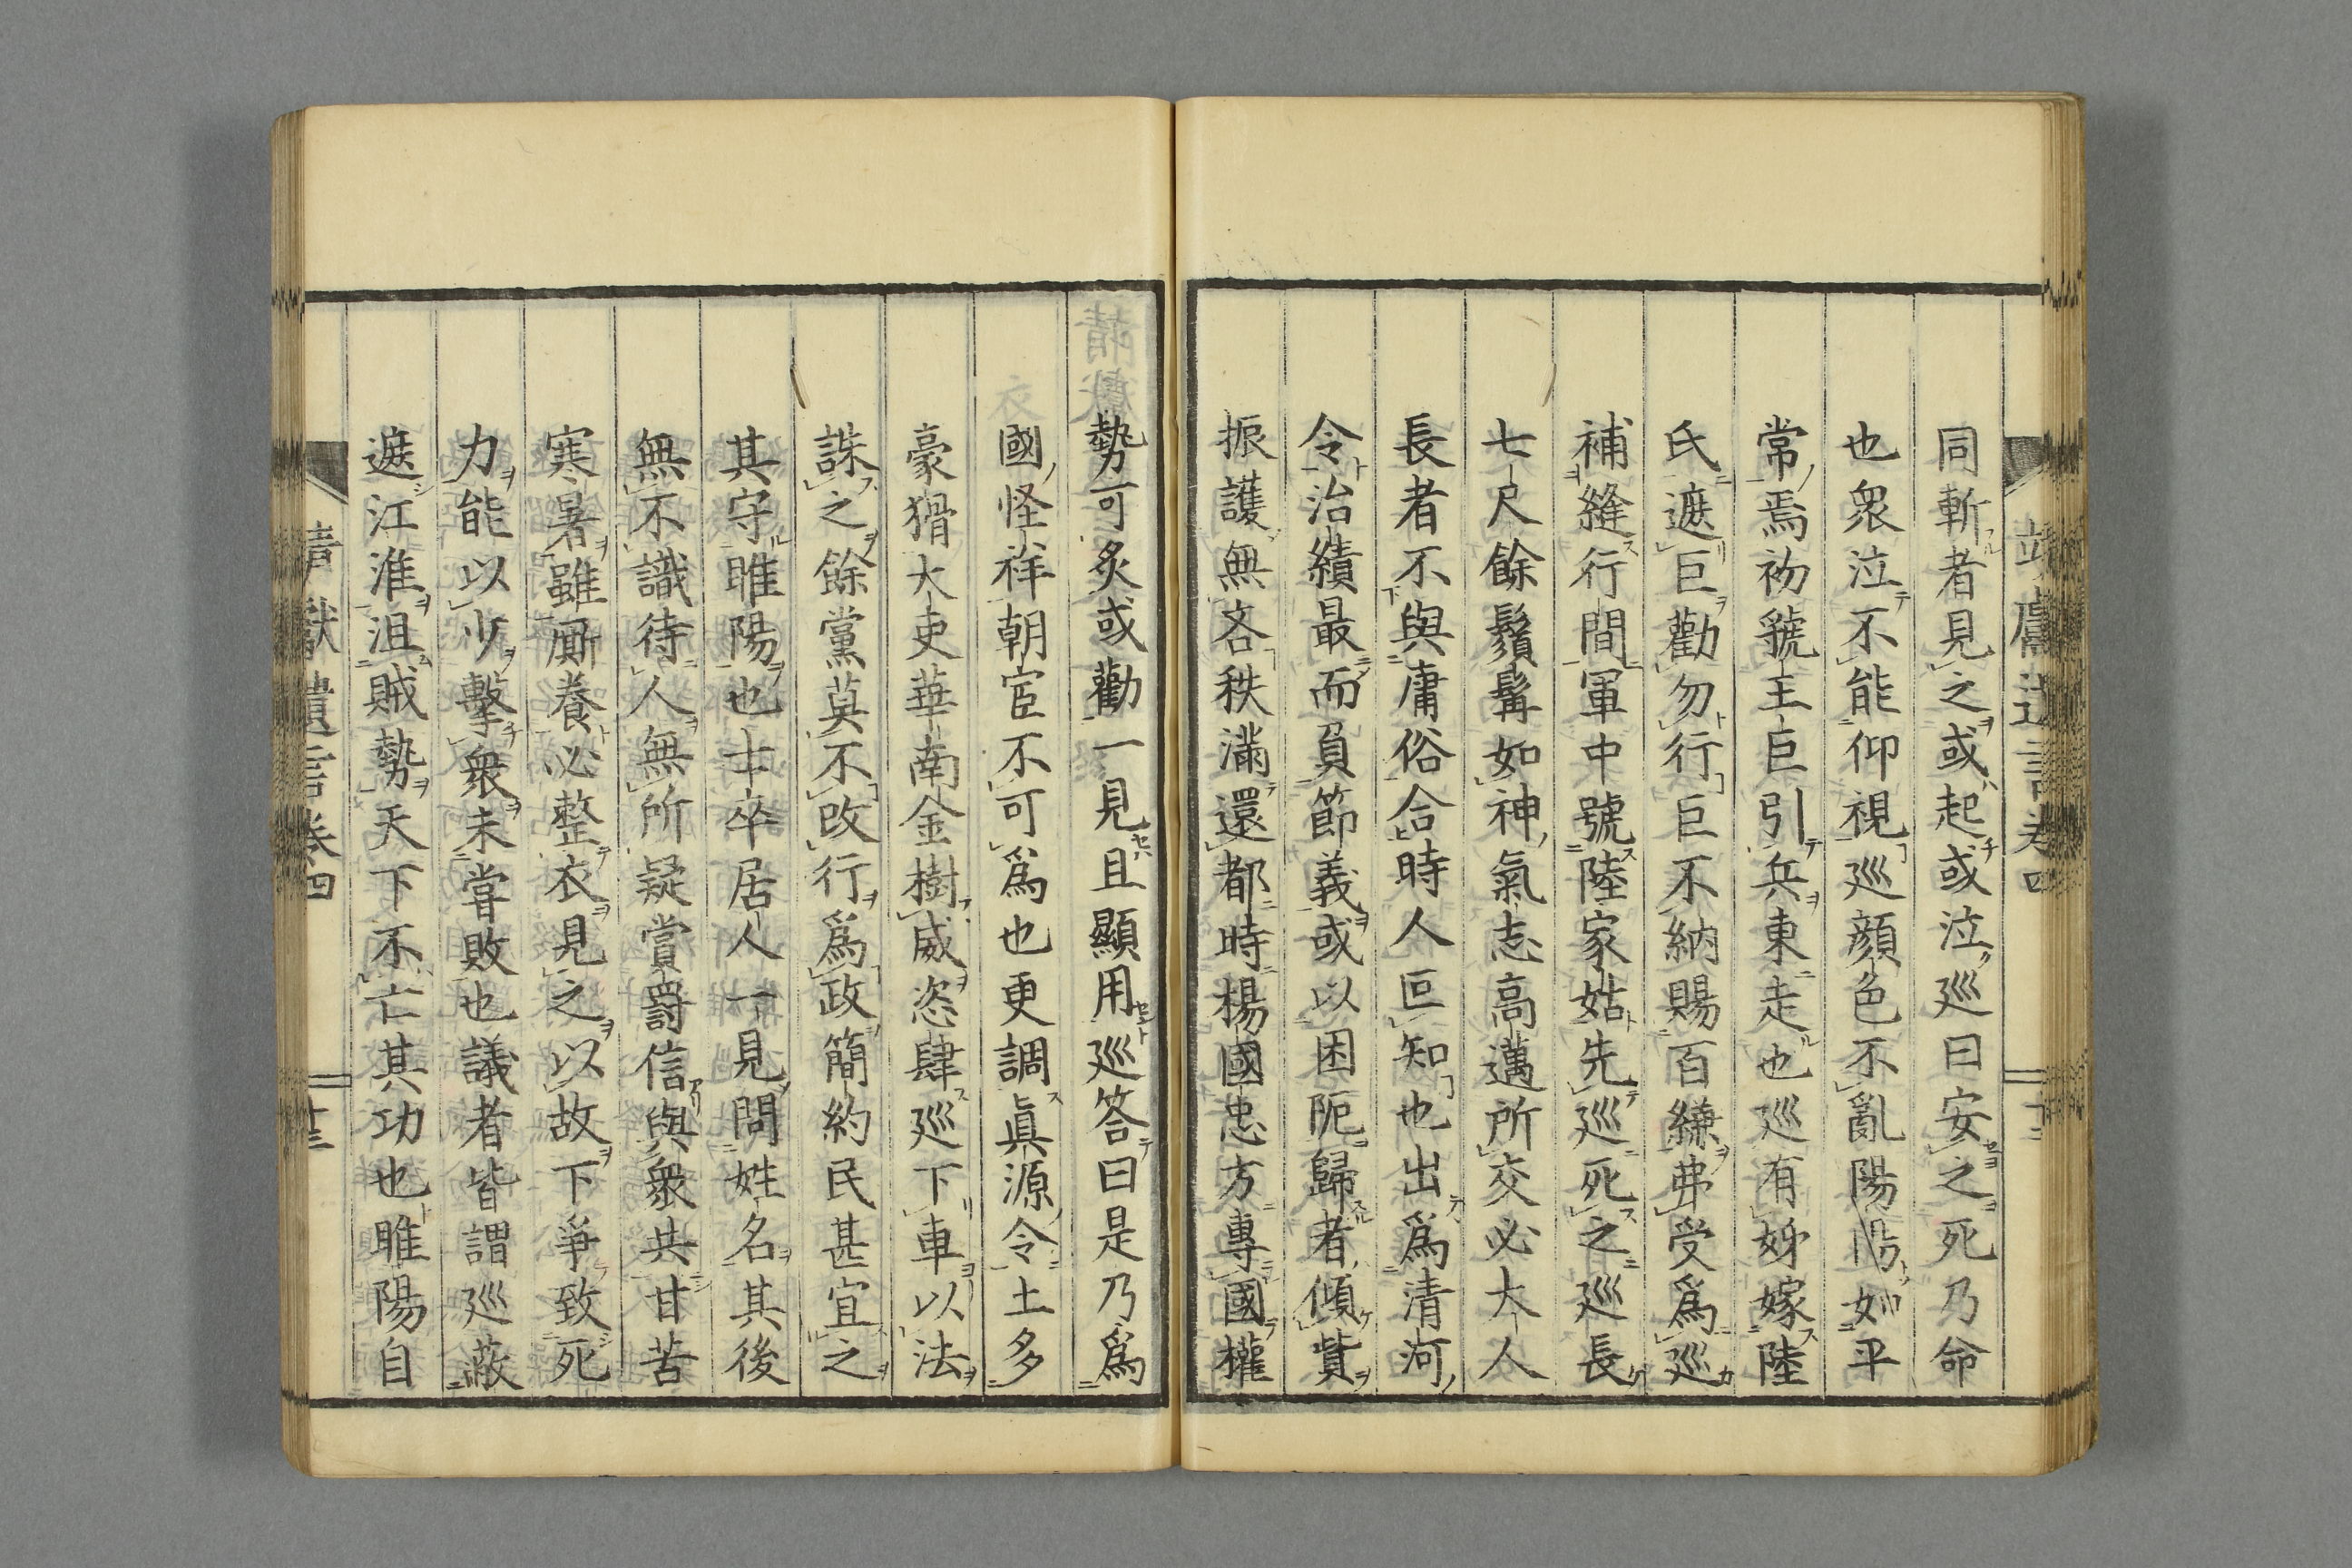 同斬者見之或起或泣巡曰安之死乃命
也衆泣不能仰視巡顔色不亂陽陽如平
常焉初虢王巨引兵東走也巡有姊嫁陸
氏遮巨勸勿行巨不納賜百縑弗受爲巡
補縫行間軍中號陸家姑先巡死之巡長
七尺餘鬚髯如神氣志高邁所交必大人
長者不與庸俗合時人叵知也出爲清河
令治績最而負節義或以困阨歸者傾貲
振護無吝秩滿還都時楊國忠方專國權
勢可炙或勸一見且顯用巡答曰是乃爲
國怪祥朝宦不可爲也更調眞源令土多
豪猾大吏華南金樹威恣肆巡下車以法
誅之餘黨莫不改行爲政簡約民甚宜之
其守睢陽也士卒居人一見問姓名其後
無不識待人無所疑賞罰信與衆共甘苦
寒暑雖厮養必整衣見之以故下爭致死
力能以少擊衆未甞敗也議者皆謂巡蔽
遮江淮沮賊勢天下不亡其功也睢陽自
靖獻遺言卷四
十三